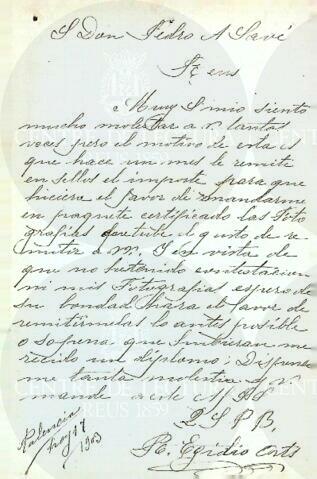 S. Don Pedro A Savé
Reus
Muy S. mio siento
mucho molestar a V. tantas
veces pero el motivo de esta es
que hace un mes le remiti
en sellos el importe para que
hiciera el favor de mandarme
en paquete certificado las foto
grafias que tube el gusto de re
mitir a V. Y en vista de
que no he tenido contestacion
ni mis fotografias espero de
su bondad hara el favor de
remitirmelas lo antes posible
o si que hubieran me
recido un diploma; Dispense
me tanta molestia y
mande a este S.S.
Q S M B
R. Egidio Corts
Palencia
17
1903
CENTRE DE LECTURA
REUS 1859